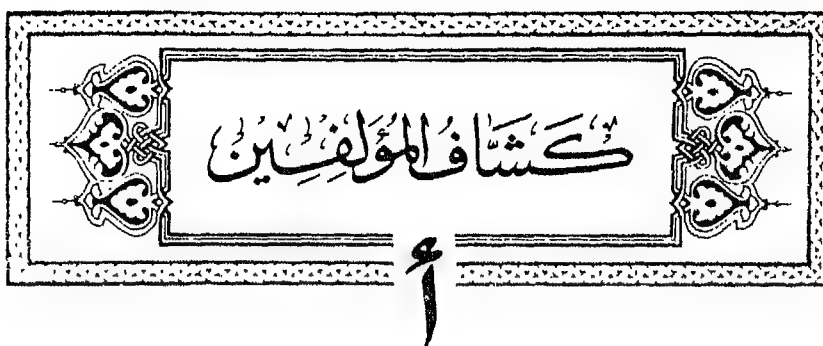 كَشَّافُ المُؤَلِّفِين
أ